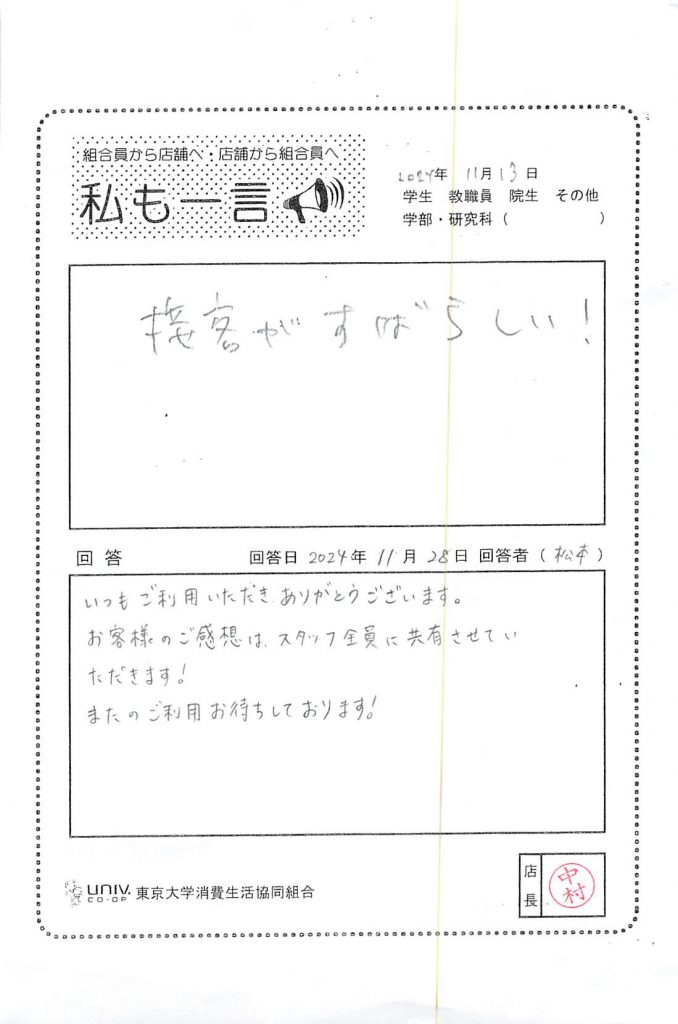 組合員から店舗へ・店舗から組合員へ
私も一言
2024年 11月13日
学生 教職員 院生 その他
学部・研究科（ ）
接客がすばらしい！
回答 回答日 2024年 11月 28日 回答者（松本）
いつもご利用いただき、ありがとうございます。
お客様のご感想は、スタッフ全員に共有させてい
ただきます！
またのご利用お待ちしております！
UNIV. CO-OP 東京大学消費生活協同組合
店長 中村